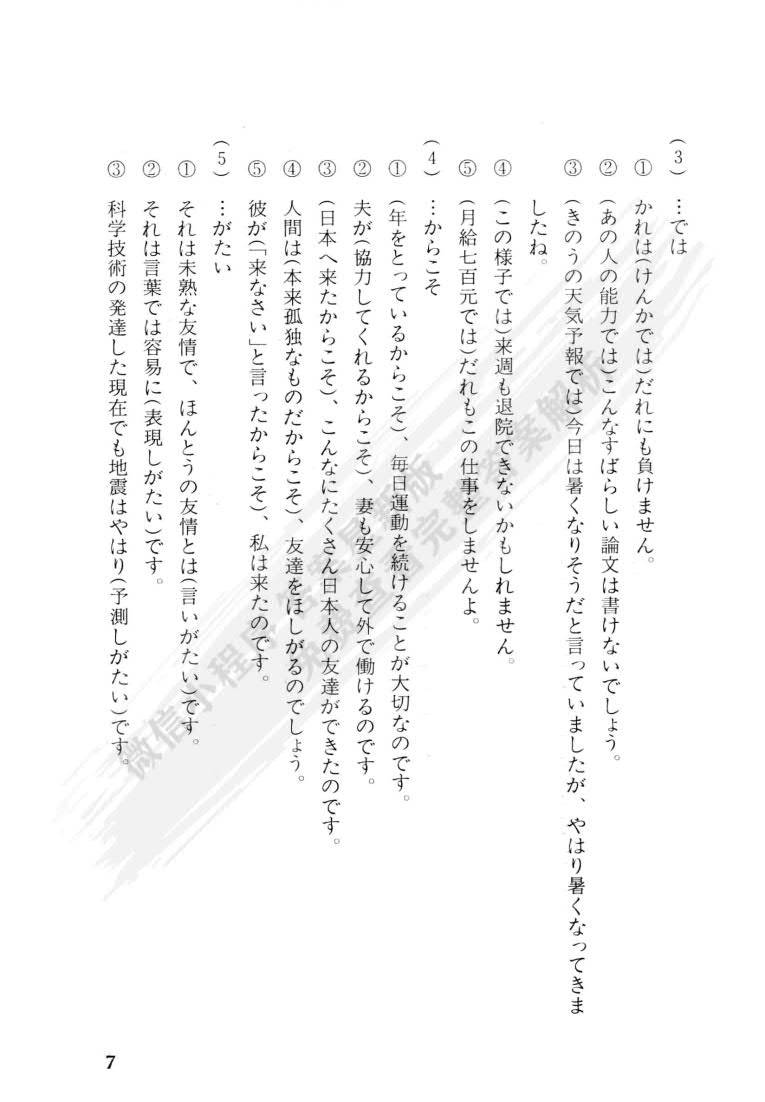 (3) …では
① かれは(けんかでは)だれにも負けません。
② (あの人の能力では)こんなすばらしい論文は書けないでしょう。
③ (きのうの天気予報では)今日は暑くなりそうだと言っていましたが、やはり暑くなってきま
したね。
④ (この様子では)来週も退院できないかもしれません。
⑤ (月給七百元では)だれもこの仕事をしませんよ。
(4) …からこそ
① (年をとっているからこそ)、毎日運動を続けることが大切なのです。
② 夫が(協力してくれるからこそ)、妻も安心して外で働けるのです。
③ (日本へ来たからこそ)、こんなにたくさん日本人の友達ができたのです。
④ 人間は(本来孤独なものだからこそ)、友達をほしがるのでしょう。
⑤ 彼が(「来なさい」と言ったからこそ)、私は来たのです。
(5) …がたい
① それは未熟な友情で、ほんとうの友情とは(言いがたい)です。
② それは言葉では容易に(表現しがたい)です。
③ 科学技術の発達した現在でも地震はやはり(予測しがたい)です。
7
微信小程序 答案最新版
免费查看完整答案解析